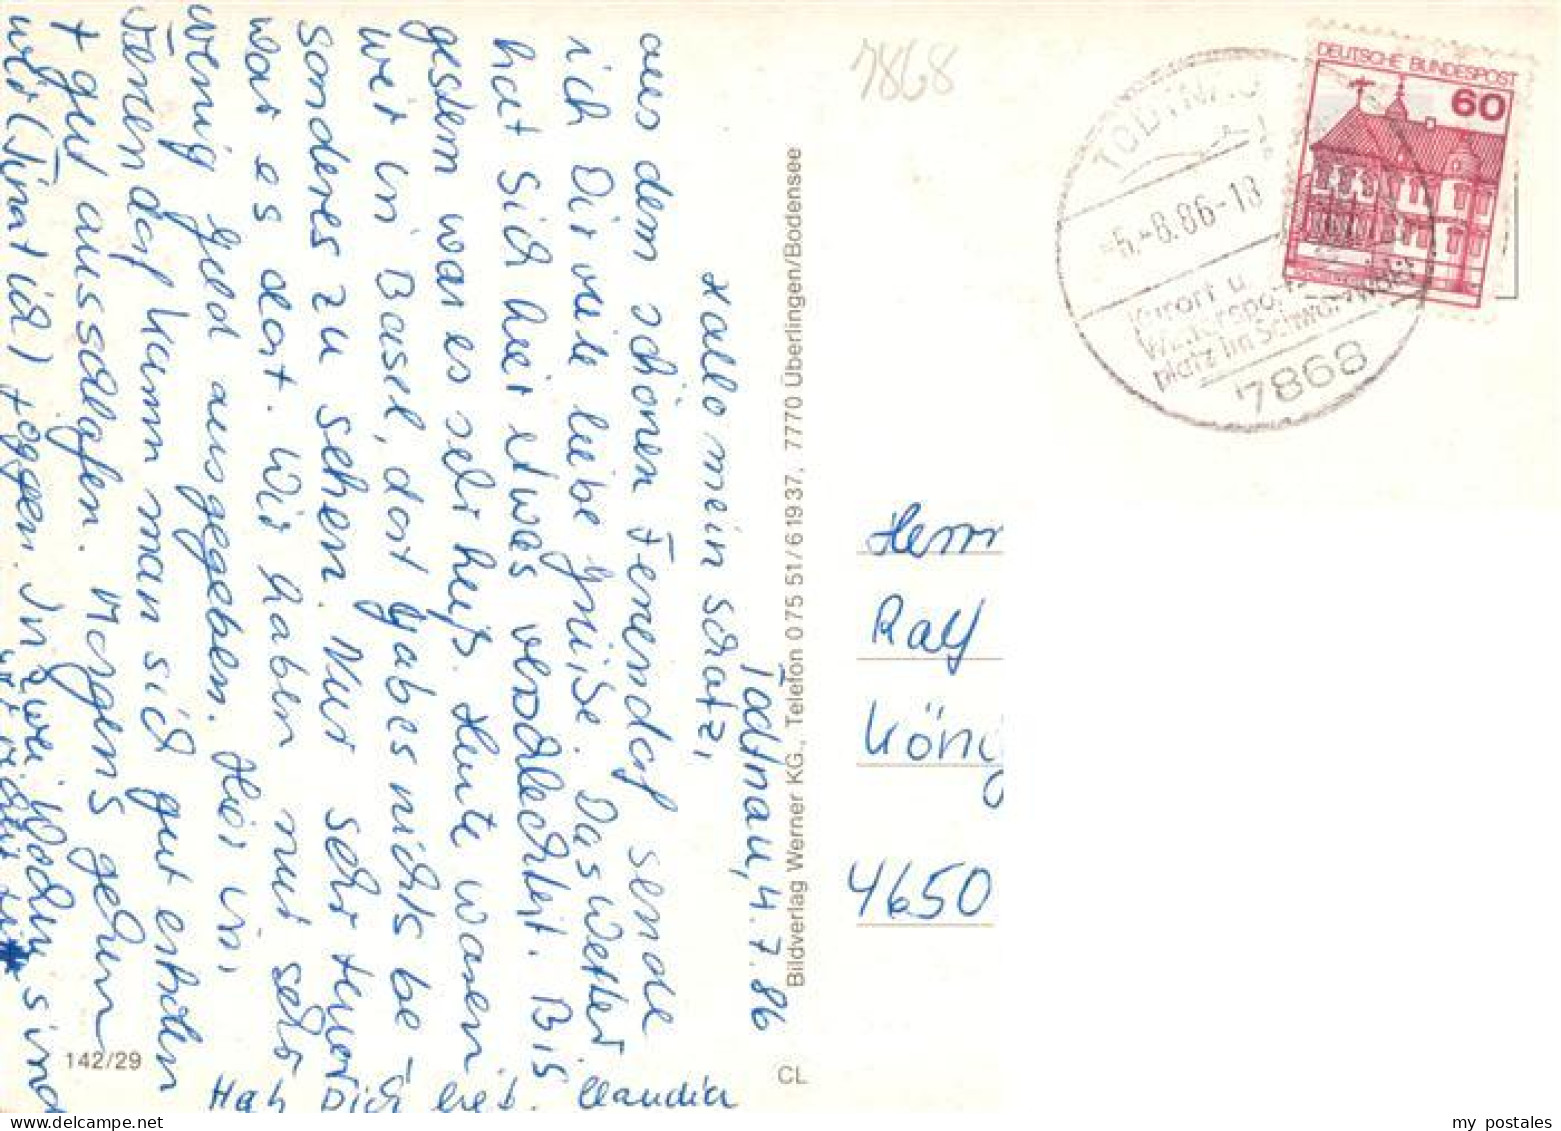 Todtnau, 4.7.86
Hallo mein Schatz,
aus dem schönen Feriendorf sende
ich Dir viele liebe Grüße. Das Wetter
hat sich hier etwas verschlechtert. Bis
gestern war es sehr heiß. Heute waren
wir in Basel, dort gab es nichts be-
sonderes zu sehen. Nur sehr teuer
war es dort. Wir haben nur sehr
wenig Geld ausgegeben. Hier im
Feriendorf kann man sich gut erholen
+ gut ausschlafen. Morgens gehen
wir (Tina + ich) joggen. In zwei Wochen sind
Hab Dich lieb. Claudia
142/29
CL
Bildverlag Werner KG., Telefon 0 75 51/6 19 37, 7770 Überlingen/Bodensee
7868
TODTNAU
-5.-8.86-18
Kurort u.
Wintersport-
platz im Schwarzwald
7868
DEUTSCHE BUNDESPOST
60
Herrn
Ralf
König
4650
my postales